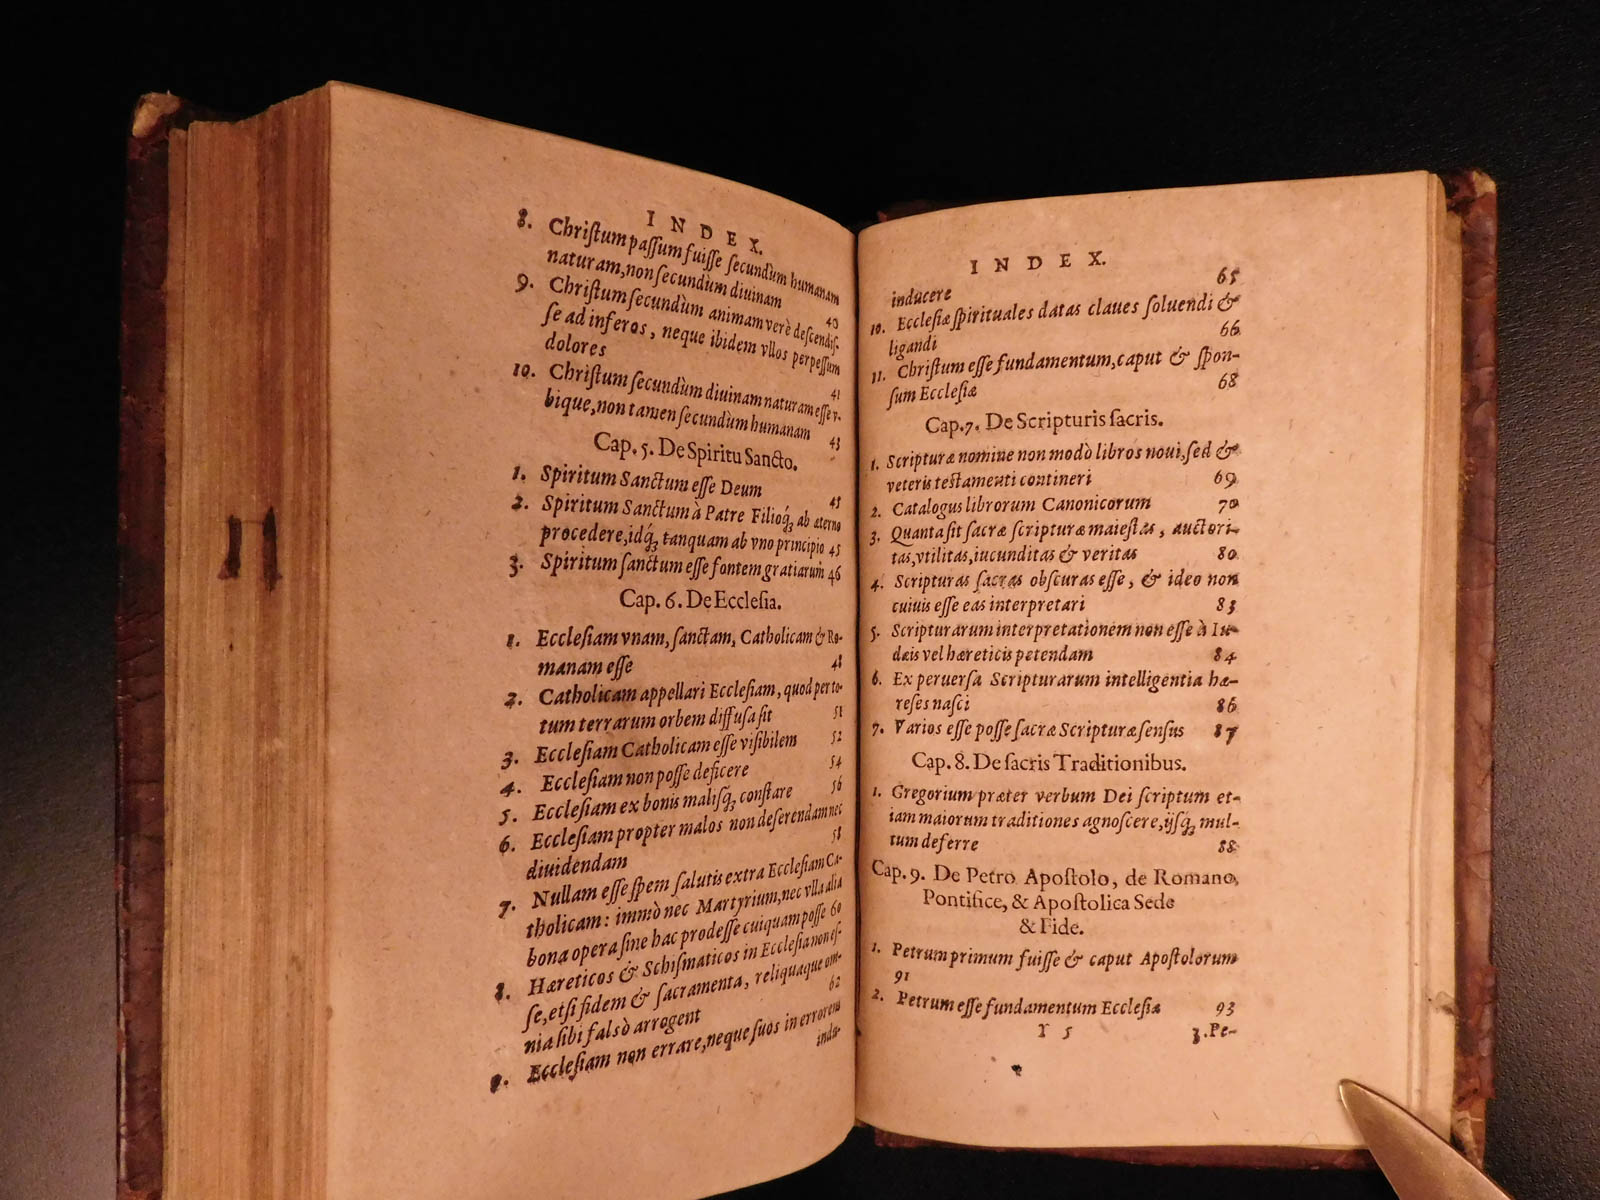 INDEX.
8. Chriſtum paſſum fuiſſe ſecundùm humanam
naturam, non ſecundùm diuinam 40
9. Chriſtum ſecundùm animam verè deſcendiſ-
ſe ad inferos, neque ibidem vllos perpeſſum
dolores 41
10. Chriſtum ſecundùm diuinam naturam eſſe v-
bique, non tamen ſecundùm humanam 43
Cap. 5. De Spiritu Sancto.
1. Spiritum Sanctum eſſe Deum 45
2. Spiritum Sanctum à Patre Filioq́; ab æterno
procedere, idq́; tanquam ab vno principio 45
3. Spiritum ſanctum eſſe fontem gratiarum 46
Cap. 6. De Eccleſia.
1. Eccleſiam vnam, ſanctam, Catholicam & Ro-
manam eſſe 48
2. Catholicam appellari Eccleſiam, quod per to-
tum terrarum orbem diffuſa ſit 51
3. Eccleſiam Catholicam eſſe viſibilem 52
4. Eccleſiam non poſſe deficere 54
5. Eccleſiam ex bonis malisq́; conſtare 56
6. Eccleſiam propter malos non deſerendam nec
diuidendam 58
7. Nullam eſſe ſpem ſalutis extra Eccleſiam Ca-
tholicam: immò nec Martyrium, nec vlla alia
bona opera ſine hac prodeſſe cuiquam poſſe 60
8. Hæreticos & Schiſmaticos in Eccleſia non eſ-
ſe, etſi fidem & ſacramenta, reliquaque om-
nia ſibi falsò arrogent 62
9. Eccleſiam non errare, neque ſuos in errorem
indu-
INDEX.
inducere 65
10. Eccleſiæ ſpirituales datas claues ſoluendi &
ligandi 66
11. Chriſtum eſſe fundamentum, caput & ſpon-
ſum Eccleſiæ 68
Cap. 7. De Scripturis ſacris.
1. Scripturæ nomine non modò libros noui, ſed &
veteris teſtamenti contineri 69
2. Catalogus librorum Canonicorum 70
3. Quanta ſit ſacræ ſcripturæ maieſtas, auctori-
tas, vtilitas, iucunditas & veritas 80
4. Scripturas ſacras obſcuras eſſe, & ideo non
cuiuis eſſe eas interpretari 83
5. Scripturarum interpretationem non eſſe à Iu-
dæis vel hæreticis petendam 84
6. Ex peruerſa Scripturarum intelligentia hæ-
reſes naſci 86
7. Varios eſſe poſſe ſacræ Scripturæ ſenſus 87
Cap. 8. De ſacris Traditionibus.
1. Gregorium præter verbum Dei ſcriptum et-
iam maiorum traditiones agnoſcere, ijſq́; mul-
tum deferre 88
Cap. 9. De Petro Apoſtolo, de Romano
Pontifice, & Apoſtolica Sede
& Fide.
1. Petrum primum fuiſſe & caput Apoſtolorum
91
2. Petrum eſſe fundamentum Eccleſiæ 93
Y 5 3. Pe-